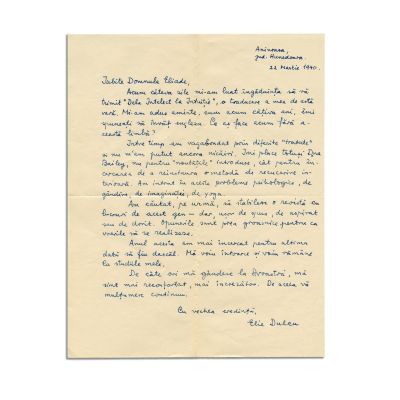 Aninoasa,
jud. Hunedoara.
22 Martie 1940.
Iubite Domnule Eliade,
Acum câteva zile mi-am luat îngăduința să vă
trimit "Dela Intelect la Intuiție", o traducere a mea de astă
vară. Mi-am adus aminte, cum acum câțiva ani, îmi
spuneați să învăț engleza. Ce aș face acum fără a-
ceastă limbă?
Între timp am vagabondat prin diferite "tratate"
și nu m'am putut ancora nicăieri. Îmi place totuși
Bailey, nu pentru "noutățile" introduse, cât pentru în-
cercarea de a reinstaura o metodă de recucerire in-
terioară. Am intrat în aceste probleme psihologice, de
gândire, de imaginație, de yoga.
Am căutat, pe urmă, să stabilesc o revistă cu
lucruri de acest gen – dar, ușor de spus, de aspirat
sau de dorit. Opunerile sunt prea grosiere, pentru ca
visurile să se realizeze.
Anul acesta am mai încercat pentru ultima
dată să fiu dascăl. Mă voiu întoarce și voiu rămâne
cu studiile mele.
De câte ori mă gândesc la Dvoastră, mă
simt mai reconfortat, mai încrezător. De aceea vă
mulțumesc continuu.
Cu vechea credință,
Elie Dulcu